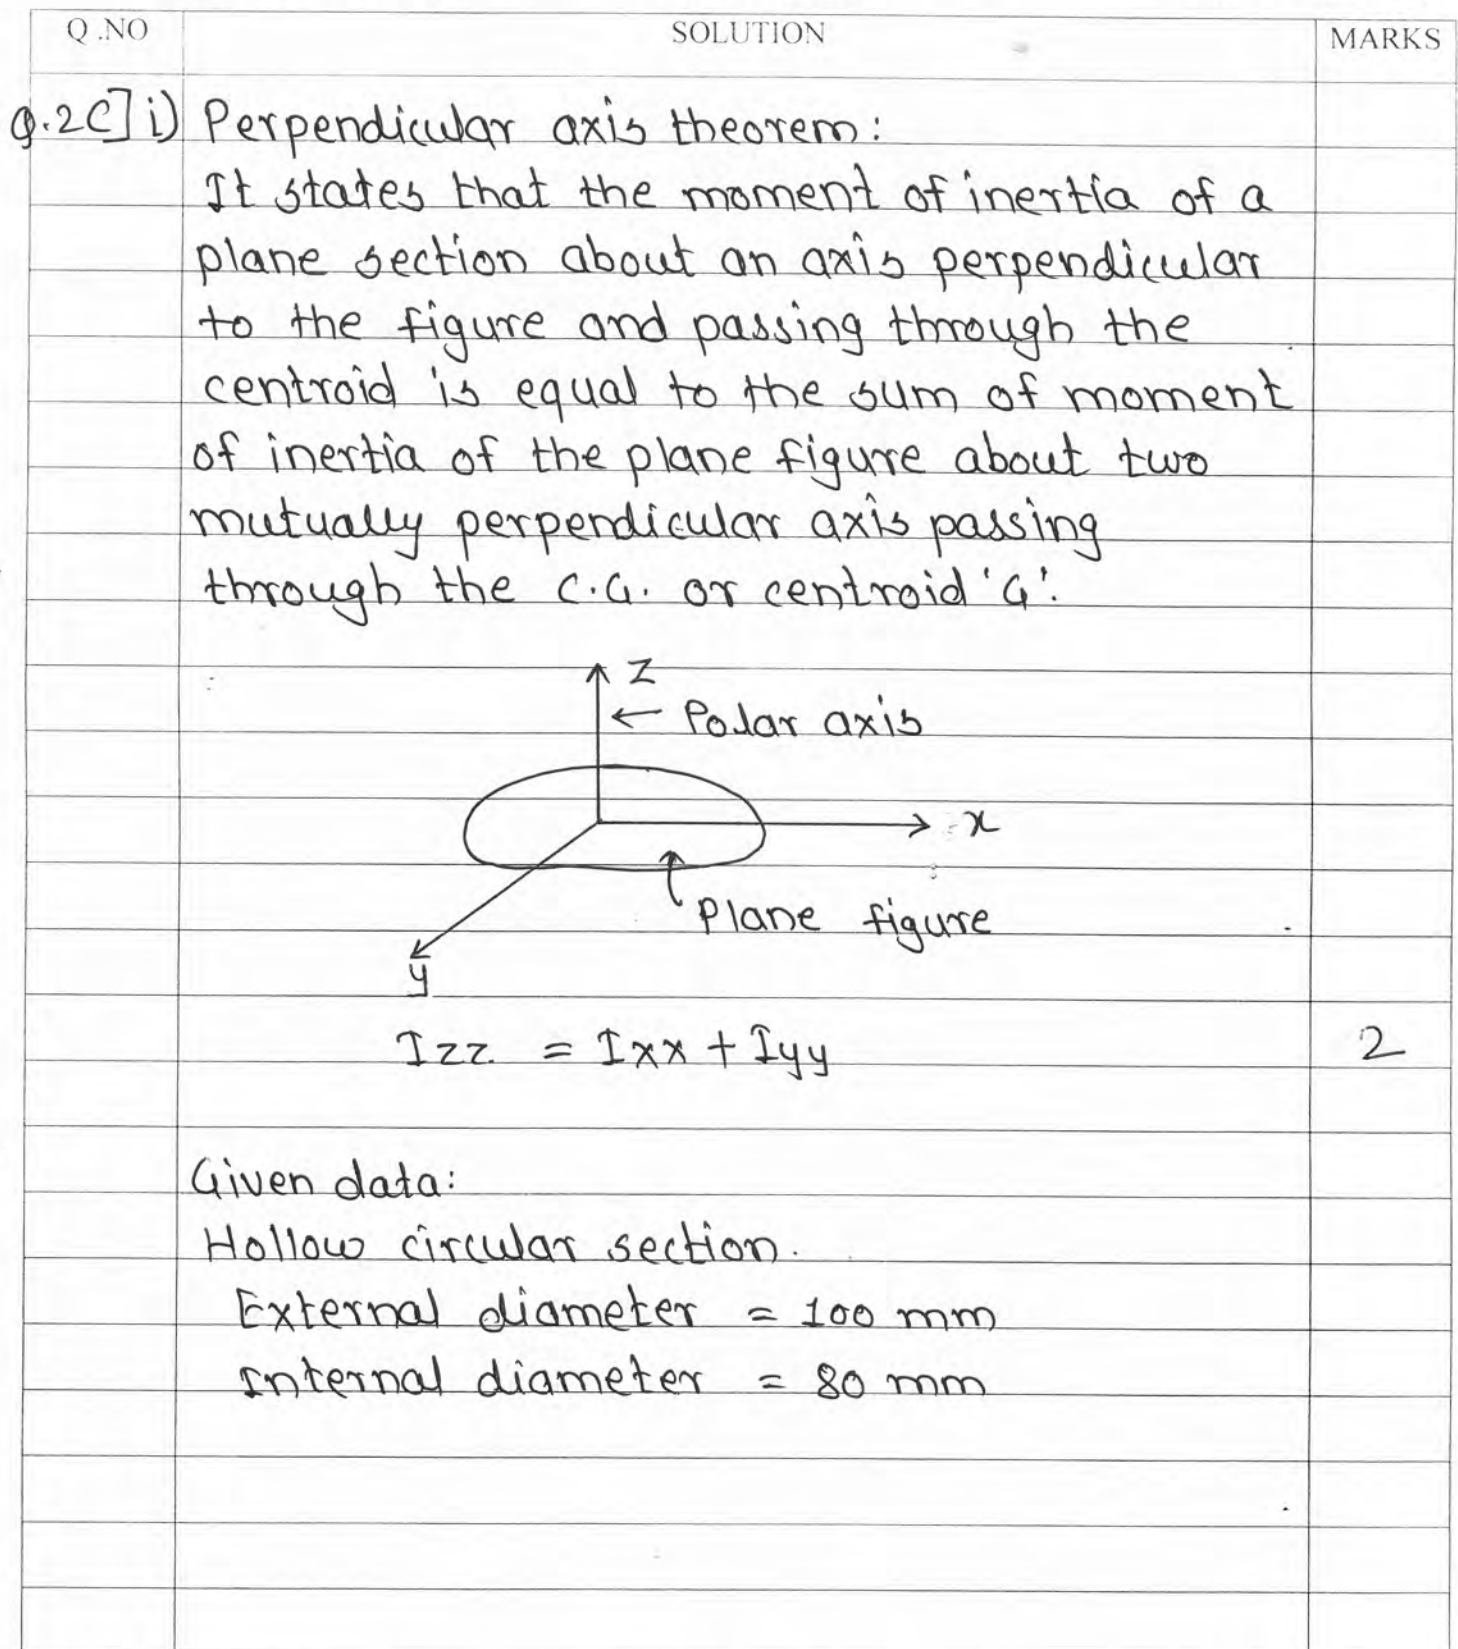 Q.NO SOLUTION MARKS
Q.2C] i) Perpendicular axis theorem:
It states that the moment of inertia of a
plane section about an axis perpendicular
to the figure and passing through the
centroid is equal to the sum of moment
of inertia of the plane figure about two
mutually perpendicular axis passing
through the C.G. or centroid 'G'.
Z
← Polar axis
x
Plane figure
y
Izz = Ixx + Iyy 2
Given data:
Hollow circular section.
External diameter = 100 mm
Internal diameter = 80 mm